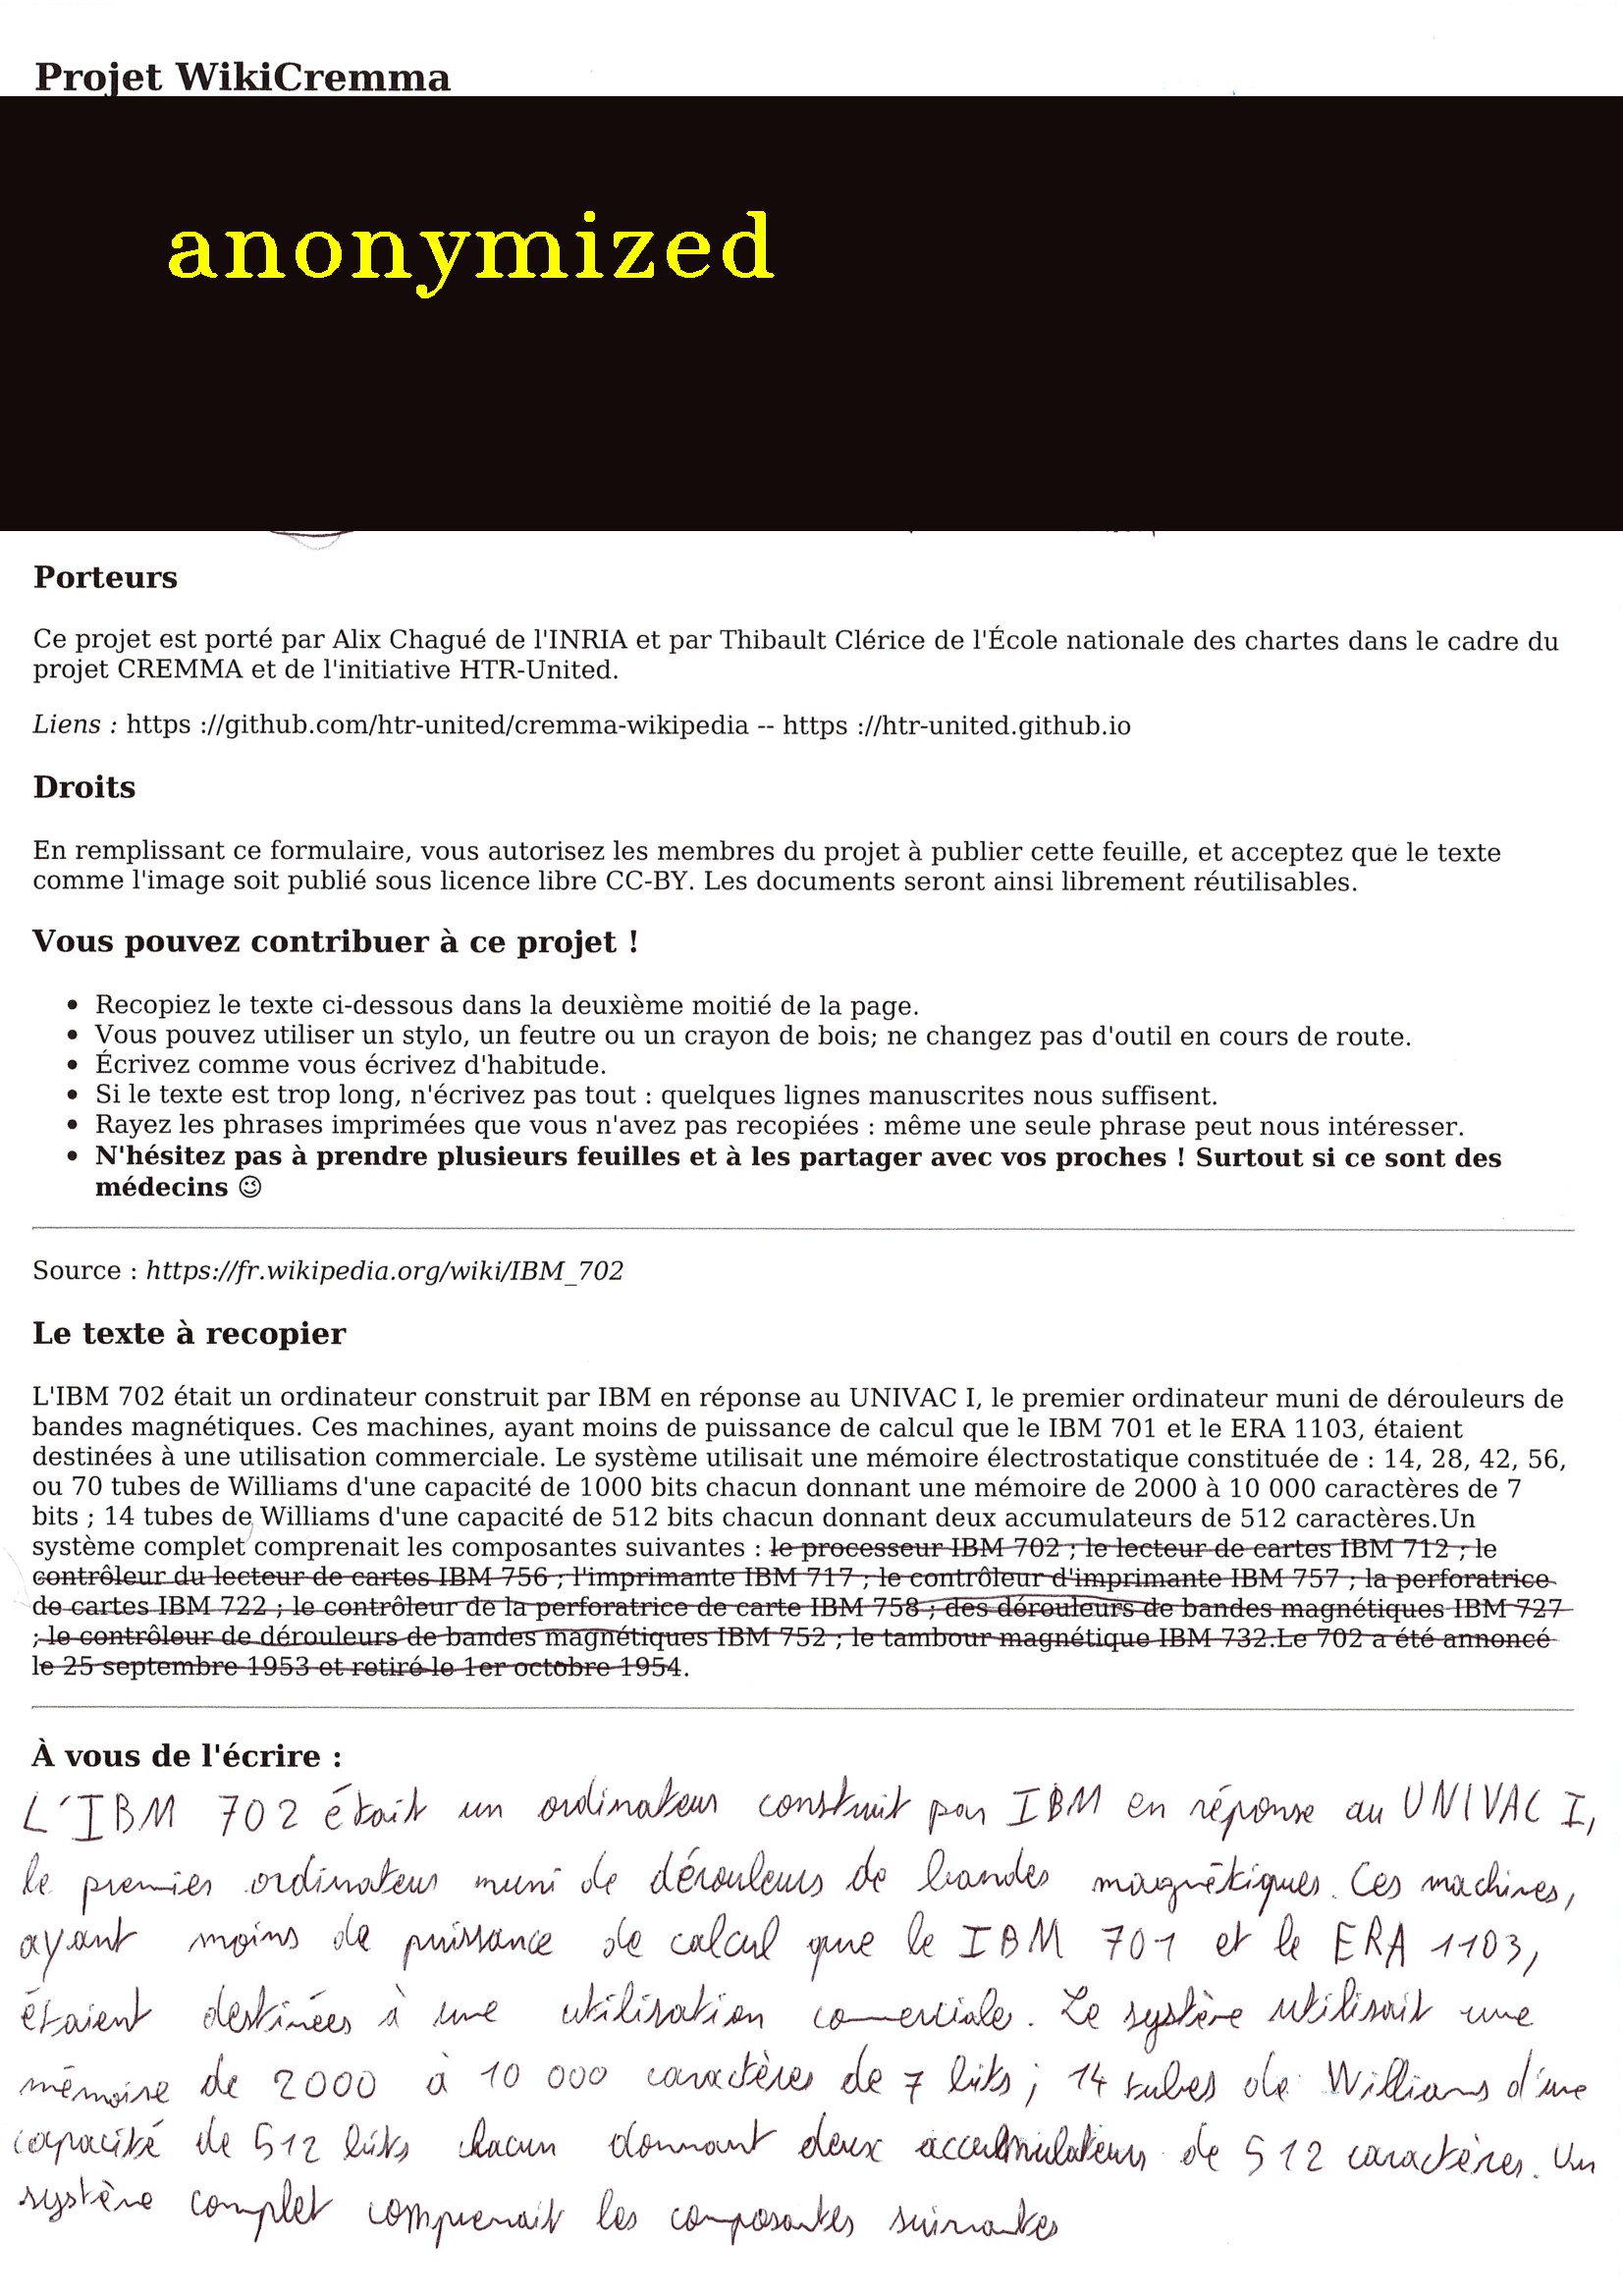 Projet WikiCremma
anonymized
Porteurs
Ce projet est porté par Alix Chagué de l'INRIA et par Thibault Clérice de l'École nationale des chartes dans le cadre du
projet CREMMA et de l'initiative HTR-United.
Liens : https ://github.com/htr-united/cremma-wikipedia -- https ://htr-united.github.io
Droits
En remplissant ce formulaire, vous autorisez les membres du projet à publier cette feuille, et acceptez que le texte
comme l'image soit publié sous licence libre CC-BY. Les documents seront ainsi librement réutilisables.
Vous pouvez contribuer à ce projet !
• Recopiez le texte ci-dessous dans la deuxième moitié de la page.
• Vous pouvez utiliser un stylo, un feutre ou un crayon de bois; ne changez pas d'outil en cours de route.
• Écrivez comme vous écrivez d'habitude.
• Si le texte est trop long, n'écrivez pas tout : quelques lignes manuscrites nous suffisent.
• Rayez les phrases imprimées que vous n'avez pas recopiées : même une seule phrase peut nous intéresser.
• N'hésitez pas à prendre plusieurs feuilles et à les partager avec vos proches ! Surtout si ce sont des
médecins 😉
Source : https://fr.wikipedia.org/wiki/IBM_702
Le texte à recopier
L'IBM 702 était un ordinateur construit par IBM en réponse au UNIVAC I, le premier ordinateur muni de dérouleurs de
bandes magnétiques. Ces machines, ayant moins de puissance de calcul que le IBM 701 et le ERA 1103, étaient
destinées à une utilisation commerciale. Le système utilisait une mémoire électrostatique constituée de : 14, 28, 42, 56,
ou 70 tubes de Williams d'une capacité de 1000 bits chacun donnant une mémoire de 2000 à 10 000 caractères de 7
bits ; 14 tubes de Williams d'une capacité de 512 bits chacun donnant deux accumulateurs de 512 caractères.Un
système complet comprenait les composantes suivantes : le processeur IBM 702 ; le lecteur de cartes IBM 712 ; le
contrôleur du lecteur de cartes IBM 756 ; l'imprimante IBM 717 ; le contrôleur d'imprimante IBM 757 ; la perforatrice
de cartes IBM 722 ; le contrôleur de la perforatrice de carte IBM 758 ; des dérouleurs de bandes magnétiques IBM 727
; le contrôleur de dérouleurs de bandes magnétiques IBM 752 ; le tambour magnétique IBM 732.Le 702 a été annoncé
le 25 septembre 1953 et retiré le 1er octobre 1954.
À vous de l'écrire :
L'IBM 702 était un ordinateur construit par IBM en réponse au UNIVAC I,
le premier ordinateur muni de dérouleurs de bandes magnétiques. Ces machines,
ayant moins de puissance de calcul que le IBM 701 et le ERA 1103,
étaient destinées à une utilisation commerciale. Le système utilisait une
mémoire de 2000 à 10 000 caractères de 7 bits ; 14 tubes de Williams d'une
capacité de 512 bits chacun donnant deux accumulateurs de 512 caractères. Un
système complet comprenait les composantes suivantes